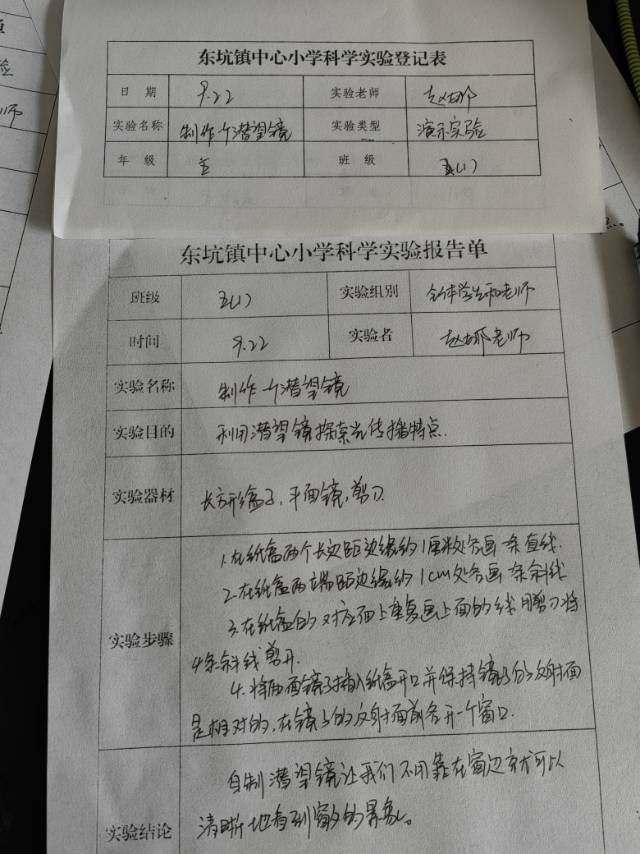 东坑镇中心小学科学实验登记表
日 期 9.22 实验老师
实验名称 制作个潜望镜 实验类型 演示实验
年 级 五 班 级 五(1)
东坑镇中心小学科学实验报告单
班级 五(1) 实验组别 全体学生和老师
时间 9.22 实验者 老师
实验名称 制作一个潜望镜
实验目的 利用潜望镜探索光传播特点.
实验器材 长方形盒子、平面镜,剪刀
1.在纸盒两个长边距边缘约1厘米处各画一条直线.
2.在纸盒两端距边缘约1cm处各画一条斜线
3.在纸盒的对应面上重复画上面的线 用剪刀将
实验步骤
4条斜线剪开.
4.将两面镜子插入纸盒开口并保持镜子的反射面
是相对的,在镜子的反射面前各开一个窗口.
自制潜望镜让我们不用靠在窗边就可以
清晰地看到窗外的景象。
实验结论